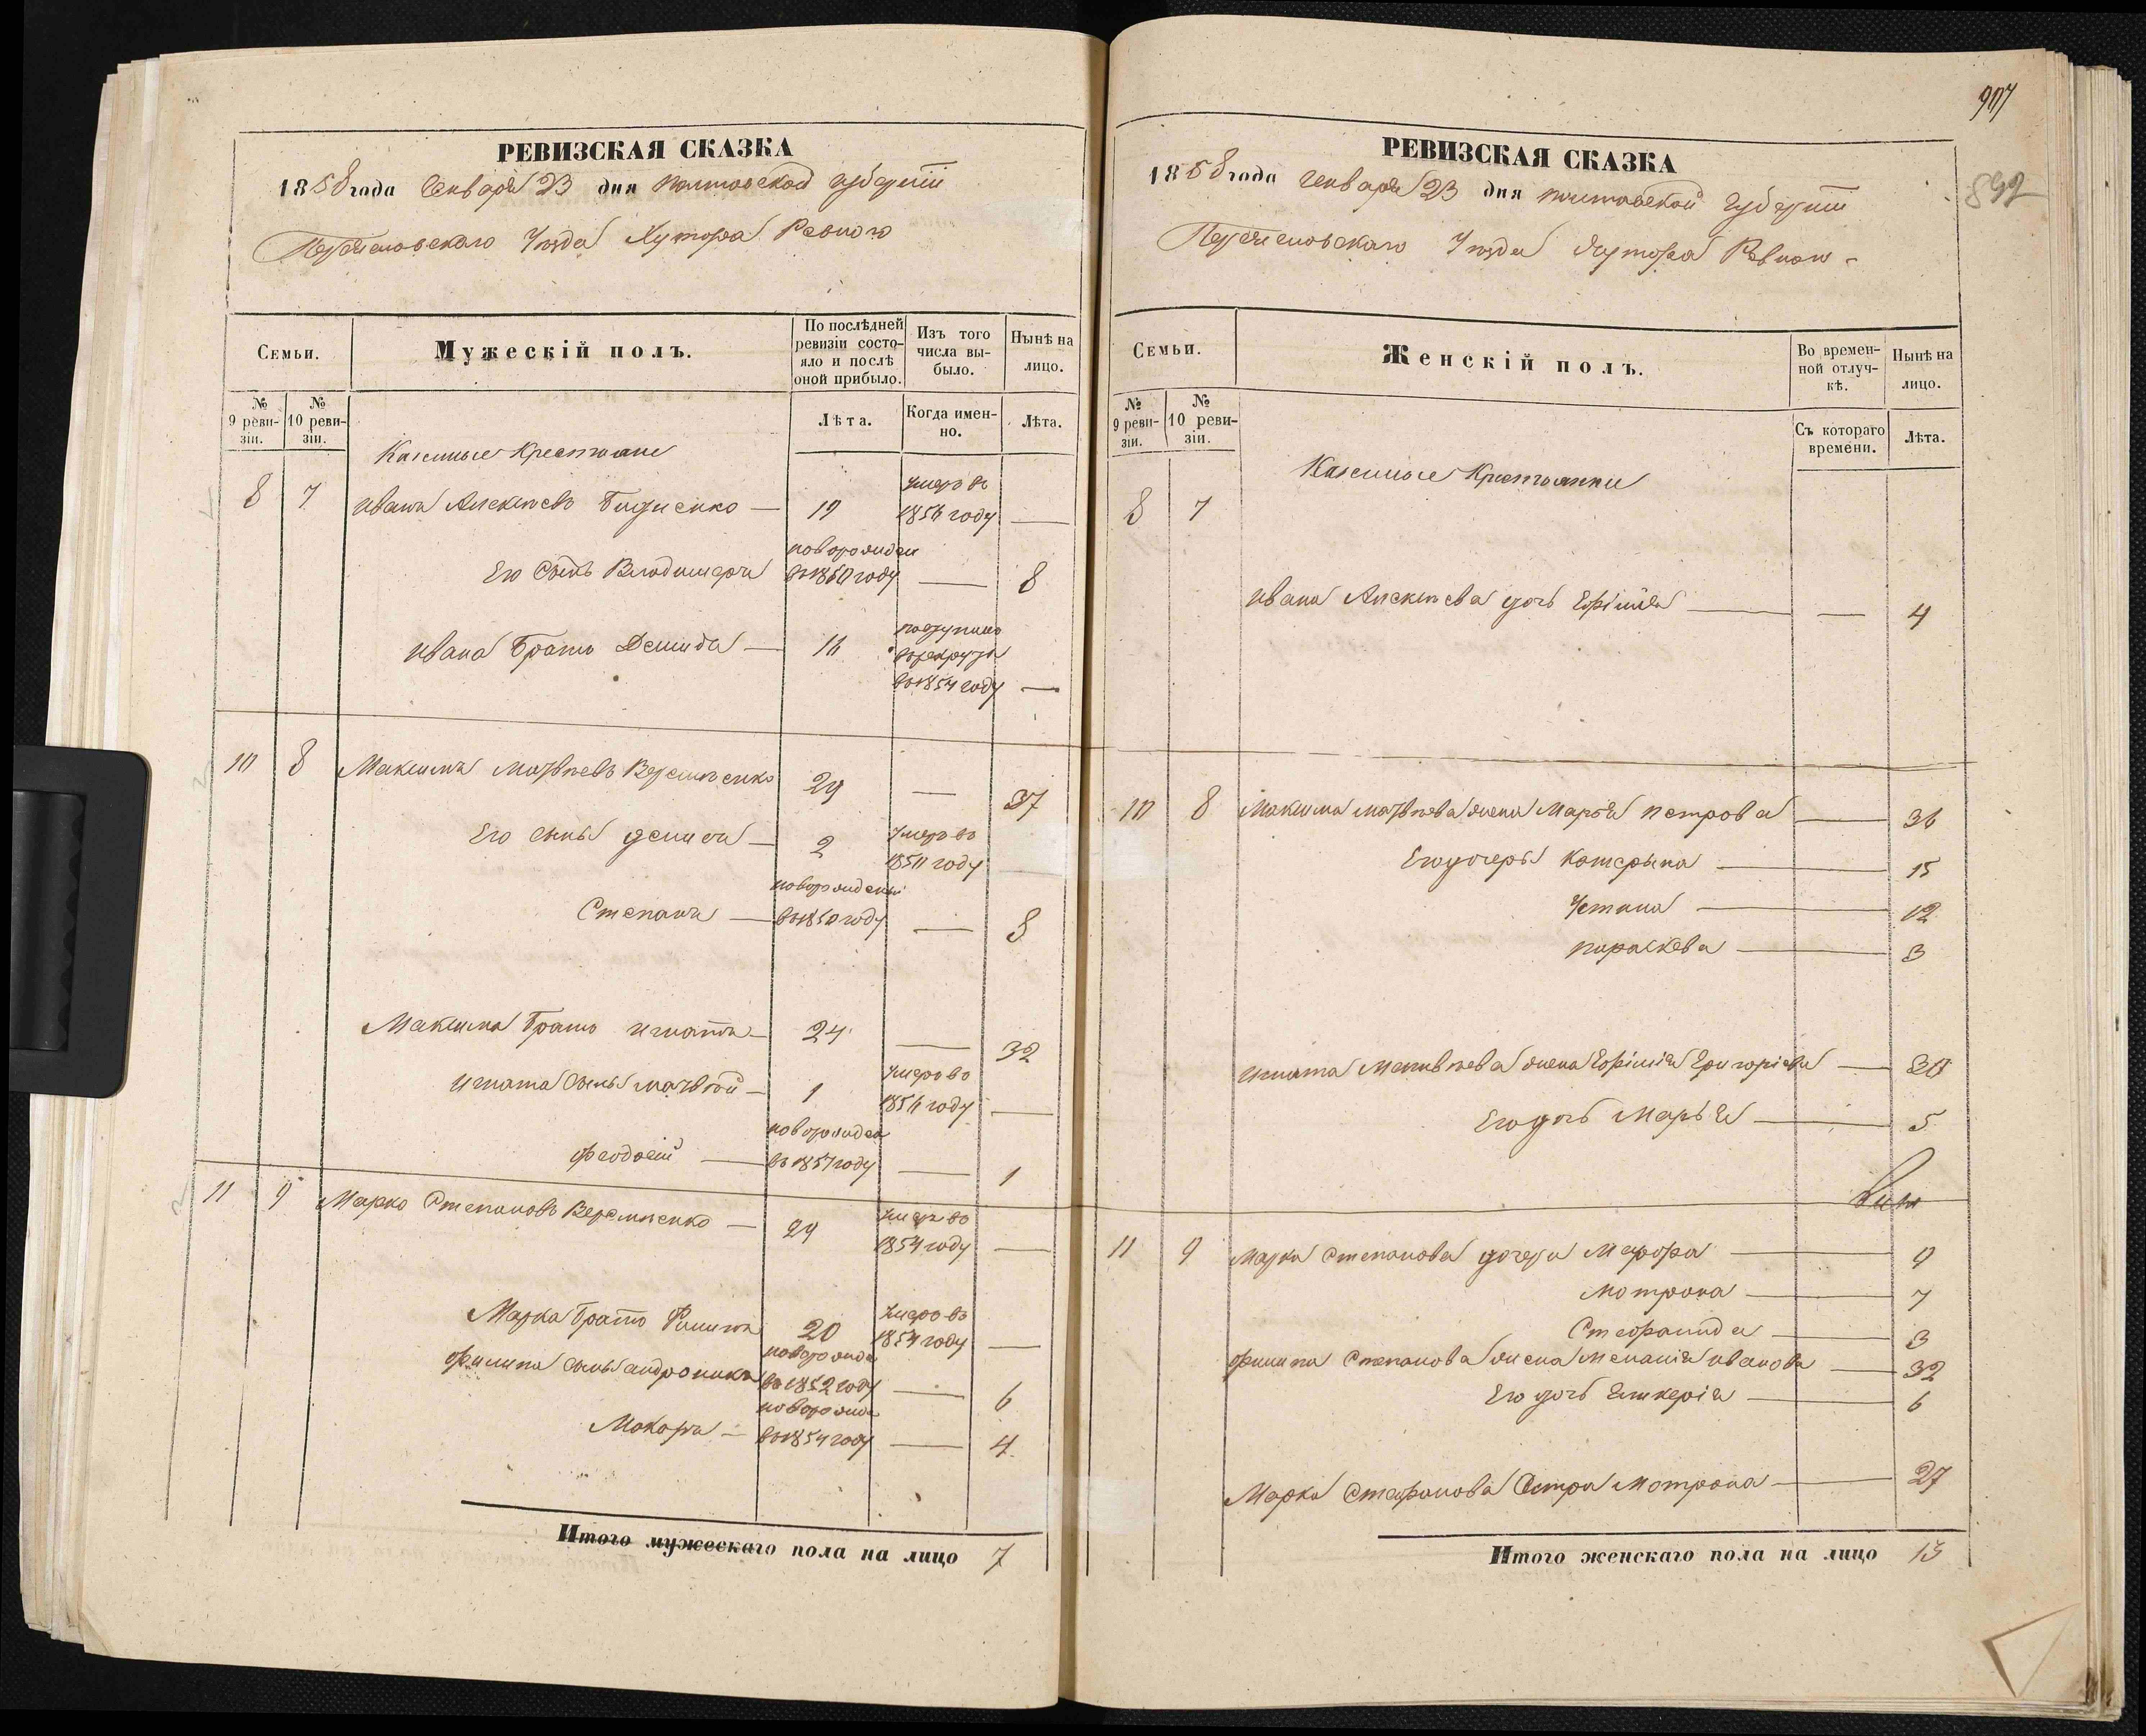 РЕВИЗСКАЯ СКАЗКА
1858 года Генваря 23 дня Полтавской губерніи
Переяславскаго Уѣзда Хутора Ревного
Семьи.
Мужескій полъ.
По послѣдней ревизіи состояло и послѣ оной прибыло.
Изъ того числа выбыло.
Нынѣ на лицо.
№ 9 ревизіи.
№ 10 ревизіи.
Лѣта.
Когда именно.
Лѣта.
Казенные Крестьяне
8 7 Иванъ Алексѣевъ — 19 умеръ въ 1856 году —
Его Сынъ Владимеръ новорожден въ 1850 году — 8
Ивана Братъ Демидъ — 16 поступилъ въ рекруты въ 1854 году —
10 8 Максимъ Матвѣевъ Веремѣенко 29 — 37
Его сынъ Демидъ — 2 умеръ въ 1850 году
Степанъ — новорожденый въ 1850 году — 8
Максима Братъ Игнатъ — 24 — 32
Игната Сынъ Матвѣй — 1 умеръ въ 1856 году —
Феодосій — новорожден въ 1857 году — 1
11 9 Марко Степановъ Веремѣенко — 29 умеръ въ 1854 году —
Марка Братъ Филипъ 20 умеръ въ 1854 году —
Филипа Сынъ Андроникъ новорожде въ 1852 году — 6
Макаръ — новорожде въ 1854 году — 4
Итого мужескаго пола на лицо 7
907
892
РЕВИЗСКАЯ СКАЗКА
1858 года Генваря 23 дня Полтавской Губерніи
Переяславскаго Уѣзда Хутора
Семьи.
Женскій полъ.
Во временной отлучкѣ.
Нынѣ на лицо.
№ 9 ревизіи.
№ 10 ревизіи.
Съ котораго времени.
Лѣта.
Казенные Крестьянки
8 7
Ивана Алексѣева дочь Ефімія — — 4
10 8 Максима Матвѣева жена Марья Петрова — 36
Его дочеры Катерына — 15
Устина — 12
Параскева — 3
Игната Матвѣева жена Ефімія Григоріева — 30
Его дочь Марья — 5
11 9 Марка Степанова дочери Марфа — 9
Мотрона — 7
Стефанида — 3
Филипа Степанова жена Меланія Иванова — 32
Его дочь Гликерія — 6
Марка Стефанова Сестра Мотрона — 27
Итого женскаго пола на лицо 13